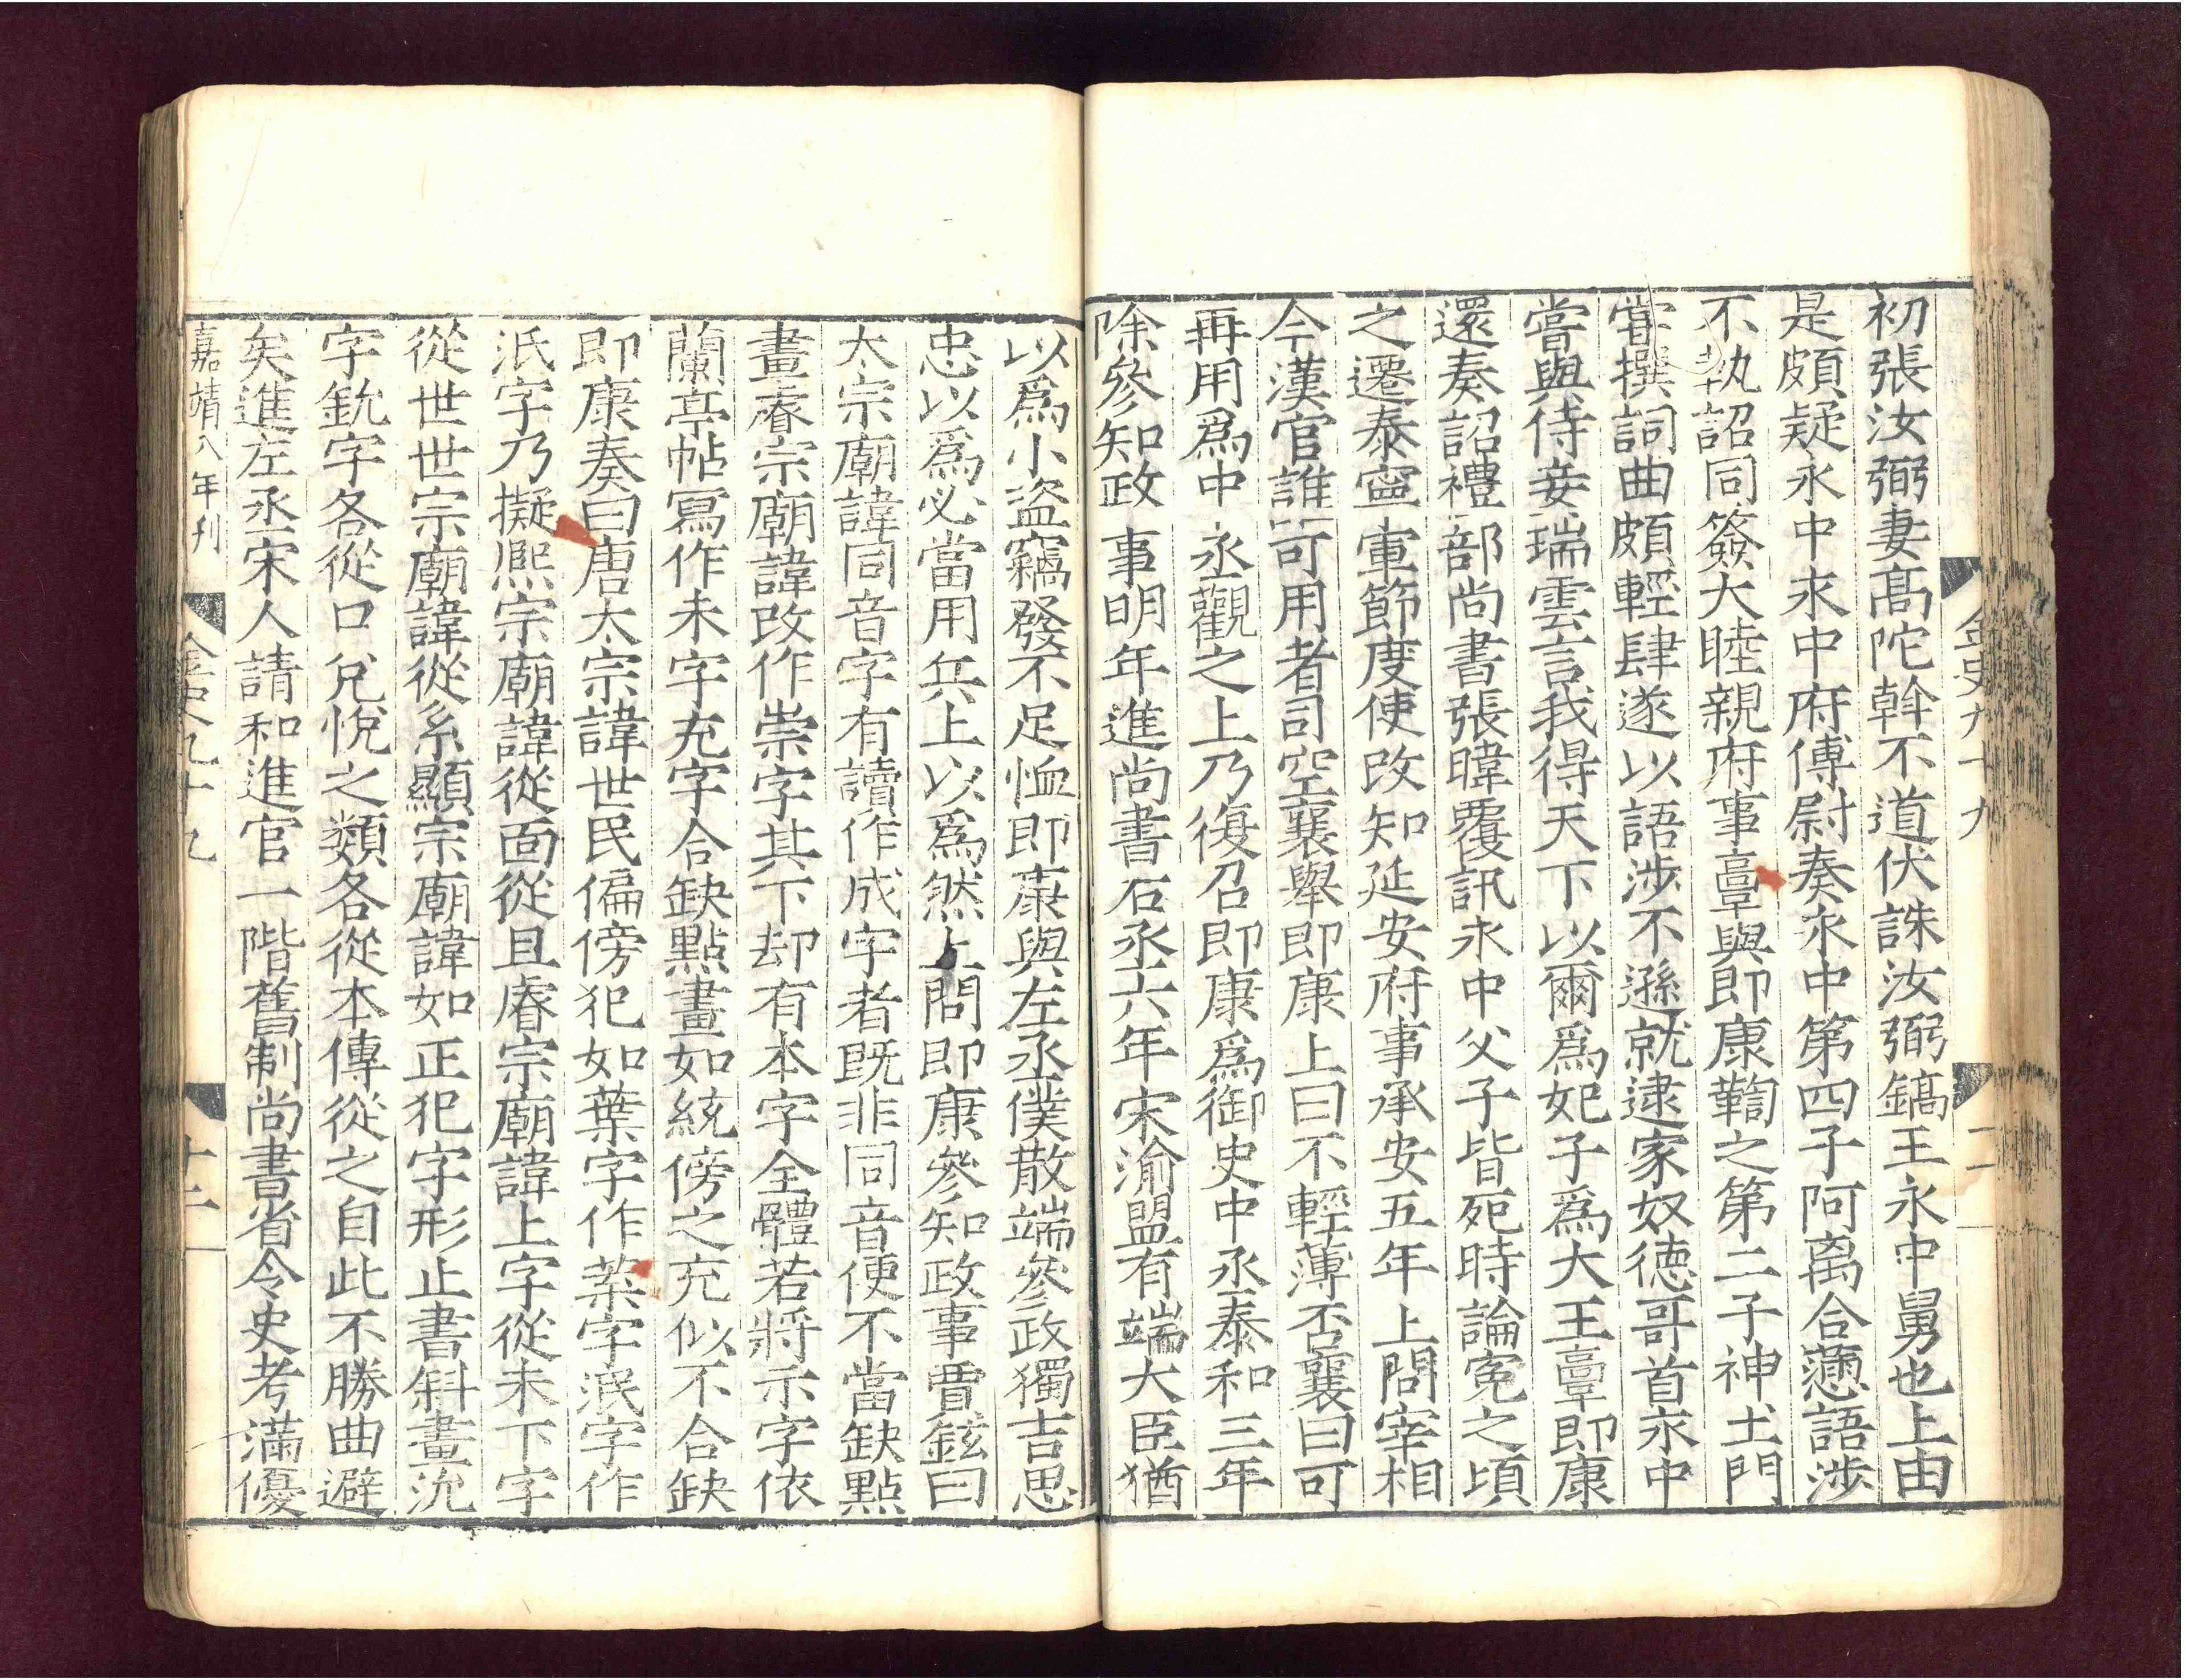 金史九十九
初張汝弼妻髙陀斡不道伏誅汝弼鎬王永中舅也上由
是頗疑永中永中府傅尉奏永中第四子阿离合懣語涉
不執詔同簽大睦親府事㐭與即康鞫之第二子神土門
嘗撰詞曲頗輕肆遂以語涉不遜就逮家奴德哥首永中
嘗與侍妾瑞雲言我得天下以爾爲妃子爲大王㐭即康
還奏詔禮部尚書張暐覆訊永中父子皆死時論冤之頃
之遷泰寧軍節度使改知延安府事承安五年上問宰相
今漢官誰可用者司空襄舉即康上曰不輕薄否襄曰可
再用爲中丞觀之上乃復召即康爲御史中丞泰和三年
除參知政事明年進尚書右丞六年宋渝盟有端大臣猶
以爲小盜竊發不足恤即康與左丞僕散端參政獨吉思
忠以爲必當用兵上以爲然上問即康參知政事賈鉉曰
太宗廟諱同音字有讀作成字者既非同音便不當缺點
畫睿宗廟諱改作崇字其下却有本字全體若將示字依
蘭亭帖寫作未字充字合缺點畫如統傍之充似不合缺
即康奏曰唐太宗諱世民偏傍犯如葉字作䒳字泯字作
泜字乃擬熙宗廟諱從面從且睿宗廟諱上字從未下字
從世世宗廟諱從系顯宗廟諱如正犯字形止書斜畫沇
字鈗字各從口兌悅之類各從本傳從之自此不勝曲避
矣進左丞宋人請和進官一階舊制尚書省令史考滿優
嘉靖八年刊
金史九十九
十二